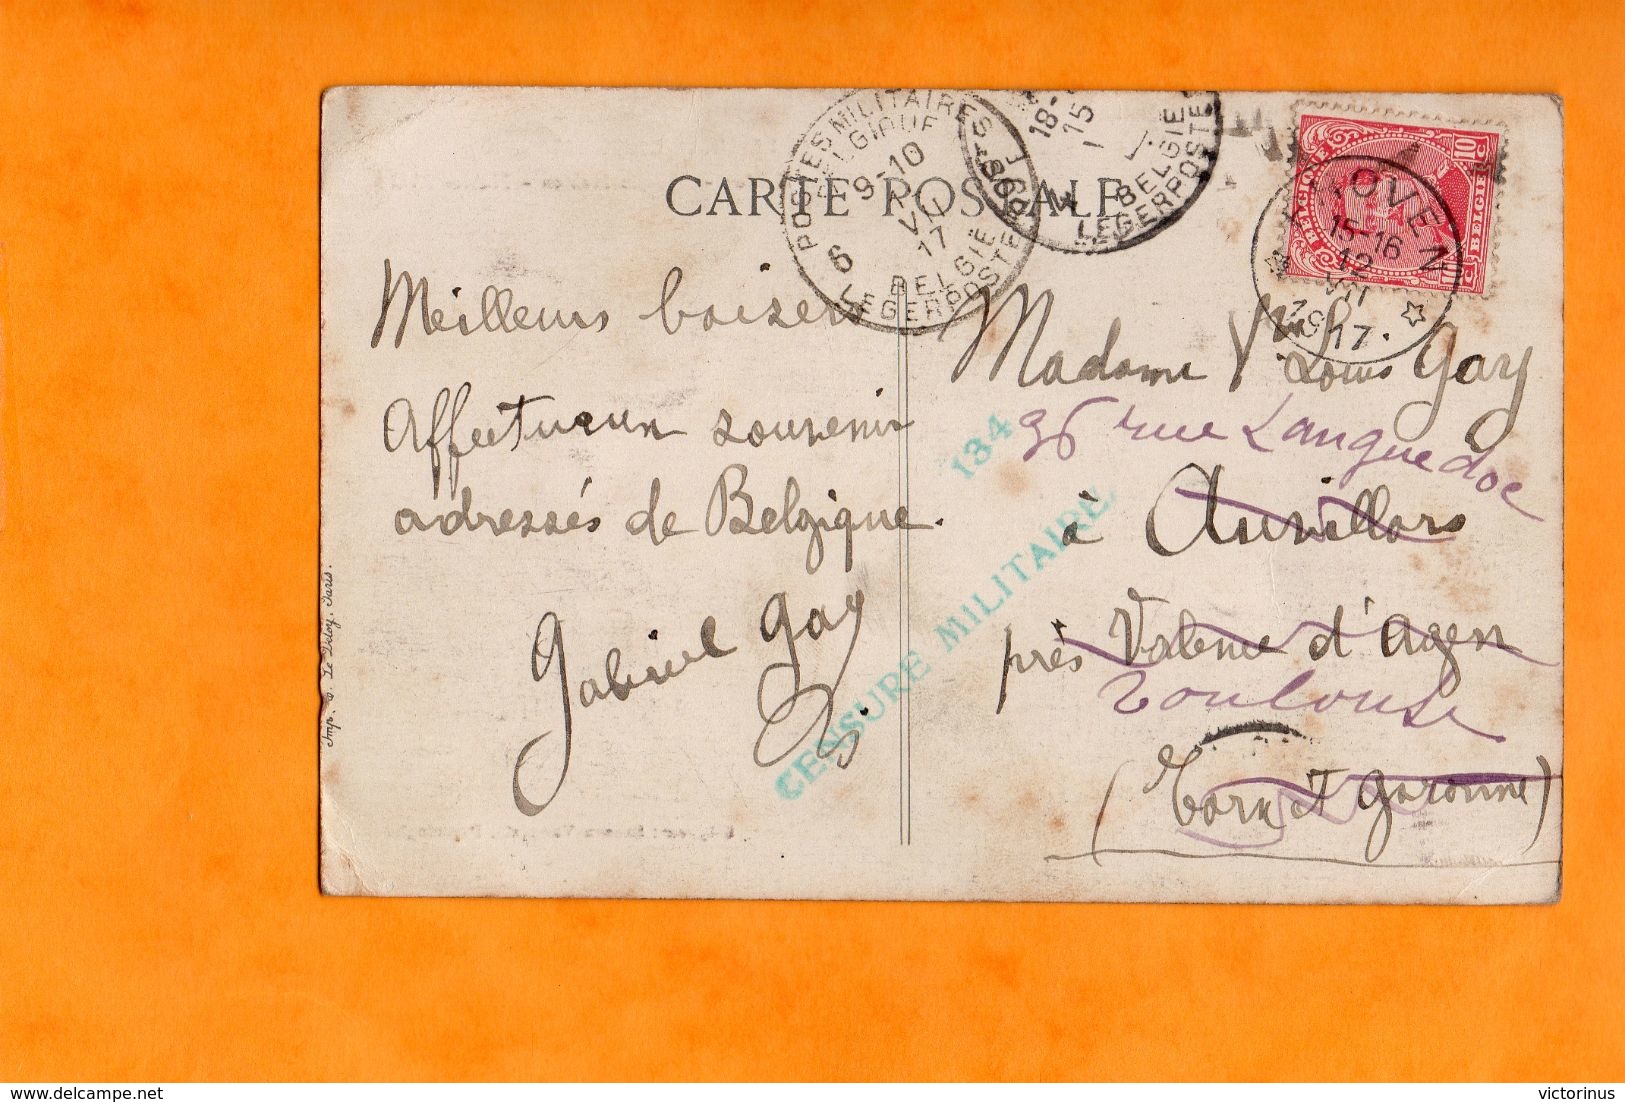 CARTE POSTALE
POSTES MILITAIRES
BELGIQUE
9-10
VII
17
6
BELGIË
LEGERPOSTERIJ
18-
15
4
BELGIË
LEGERPOSTE
BELGIQUE
10 c
BELGIË
OVEN
15-16
12
VII
1917
Meilleurs baisers
Affectueux souvenir
adressés de Belgique.
Gabriel Gay
134
CENSURE MILITAIRE
Madame Vve Louis Gay
36 rue Languedoc
à Auvillars
près Valence d'Agen
Toulouse
(Tarn et Garonne)
Imp. E. Le Deley, Paris.
delcampe.net
victorinus